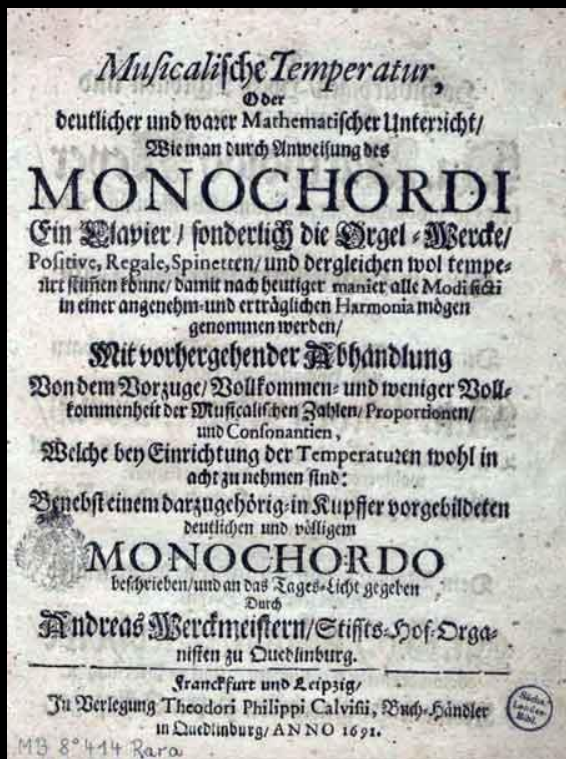 Musicalische Temperatur,
Oder
deutlicher und warer Mathematischer Unterricht/
Wie man durch Anweisung des
MONOCHORDI
Ein Clavier/ sonderlich die Orgel-Wercke/
Positive, Regale, Spinetten/ und dergleichen wol tempe-
rirt stim̃en könne/ damit nach heutiger manier alle Modi ficti
in einer angenehm- und erträglichen Harmonia mögen
genommen werden/
Mit vorhergehender Abhandlung
Von dem Vorzuge/ Vollkommen- und weniger Voll-
kommenheit der Musicalischen Zahlen/ Proportionen/
und Consonantien,
Welche bey Einrichtung der Temperaturen wohl in
acht zu nehmen sind:
Benebst einem darzugehörig- in Kupffer vorgebildeten
deutlichen und völligem
MONOCHORDO
beschrieben/ und an das Tages-Licht gegeben
Durch
Andreas Werckmeistern/ Stiffts-Hof-Orga-
nisten zu Quedlinburg.
Franckfurt und Leipzig/
In Verlegung Theodori Philippi Calvisii, Buch-Händler
in Quedlinburg/ ANNO 1691.
Sächs.
Landes-
Bibl.
MB 8° 414 Rara